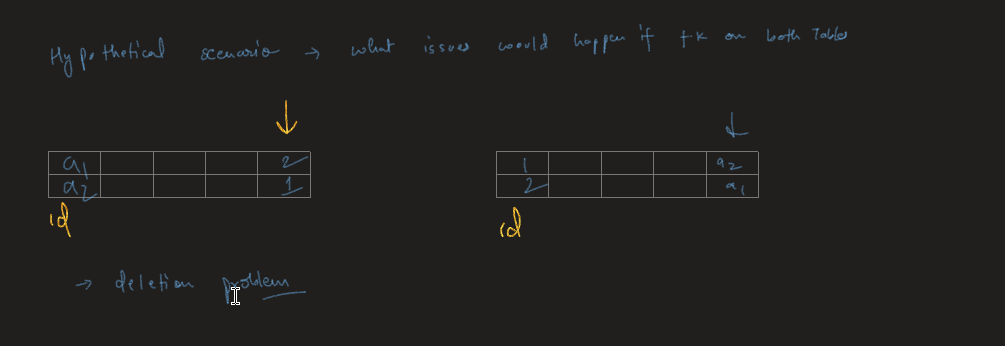 Hypothetical scenario → what issues would happen if f.k on both Tables
a1 2 1 a2
a2 1 2 a1
id id
→ deletion problem